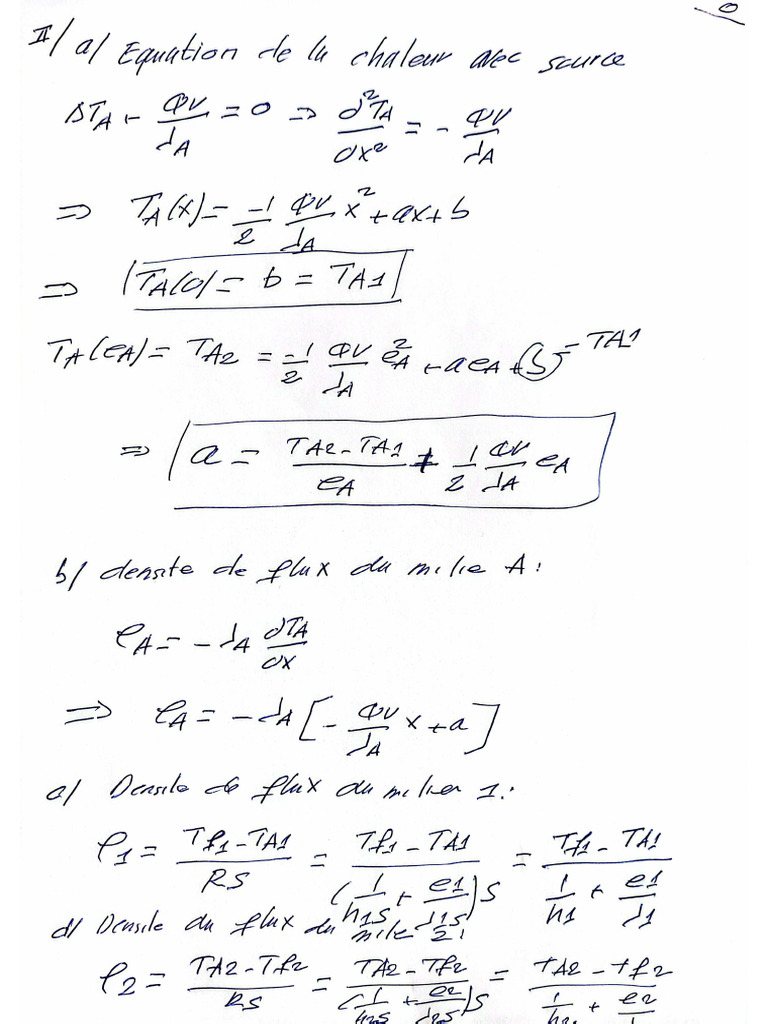 II/ a/ Equation de la chaleur avec source
ΔTA + ΦV/λA = 0 => d²TA/dx² = - ΦV/λA
=> TA(x) = -1/2 ΦV/λA x² + ax + b
=> TA(0) = b = TA1
TA(eA) = TA2 = -1/2 ΦV/λA eA² + a eA + b = TA1
=> a = (TA2 - TA1)/eA + 1/2 ΦV/λA eA
b/ densite de flux du milie A :
φA = - λA dTA/dx
=> φA = - λA [- ΦV/λA x + a]
a/ Densite de flux du milieu 1 :
φ1 = (Tf1 - TA1)/RS = (Tf1 - TA1)/((1/h1S + e1/λ1S)S) = (Tf1 - TA1)/(1/h1 + e1/λ1)
d/ Densite du flux du milie 2 :
φ2 = (TA2 - Tf2)/RS = (TA2 - Tf2)/((1/h2S + e2/λ2S)S) = (TA2 - Tf2)/(1/h2 + e2/